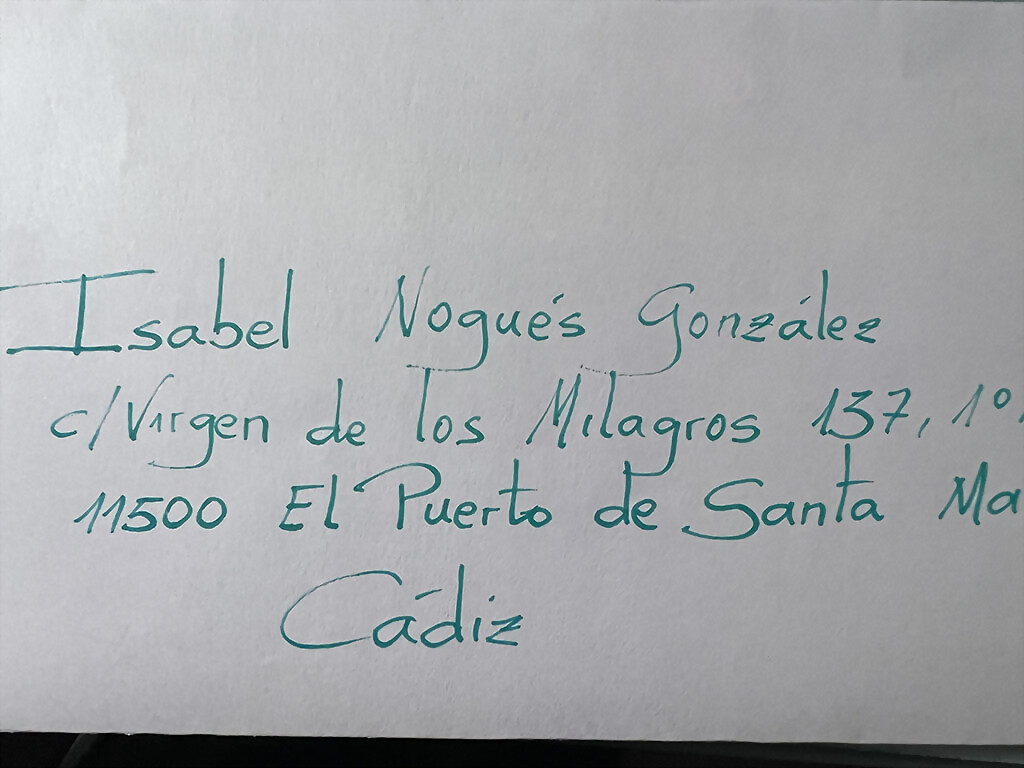 Isabel Nogués González
c/Virgen de los Milagros 137, 1º
11500 El Puerto de Santa Ma
Cádiz